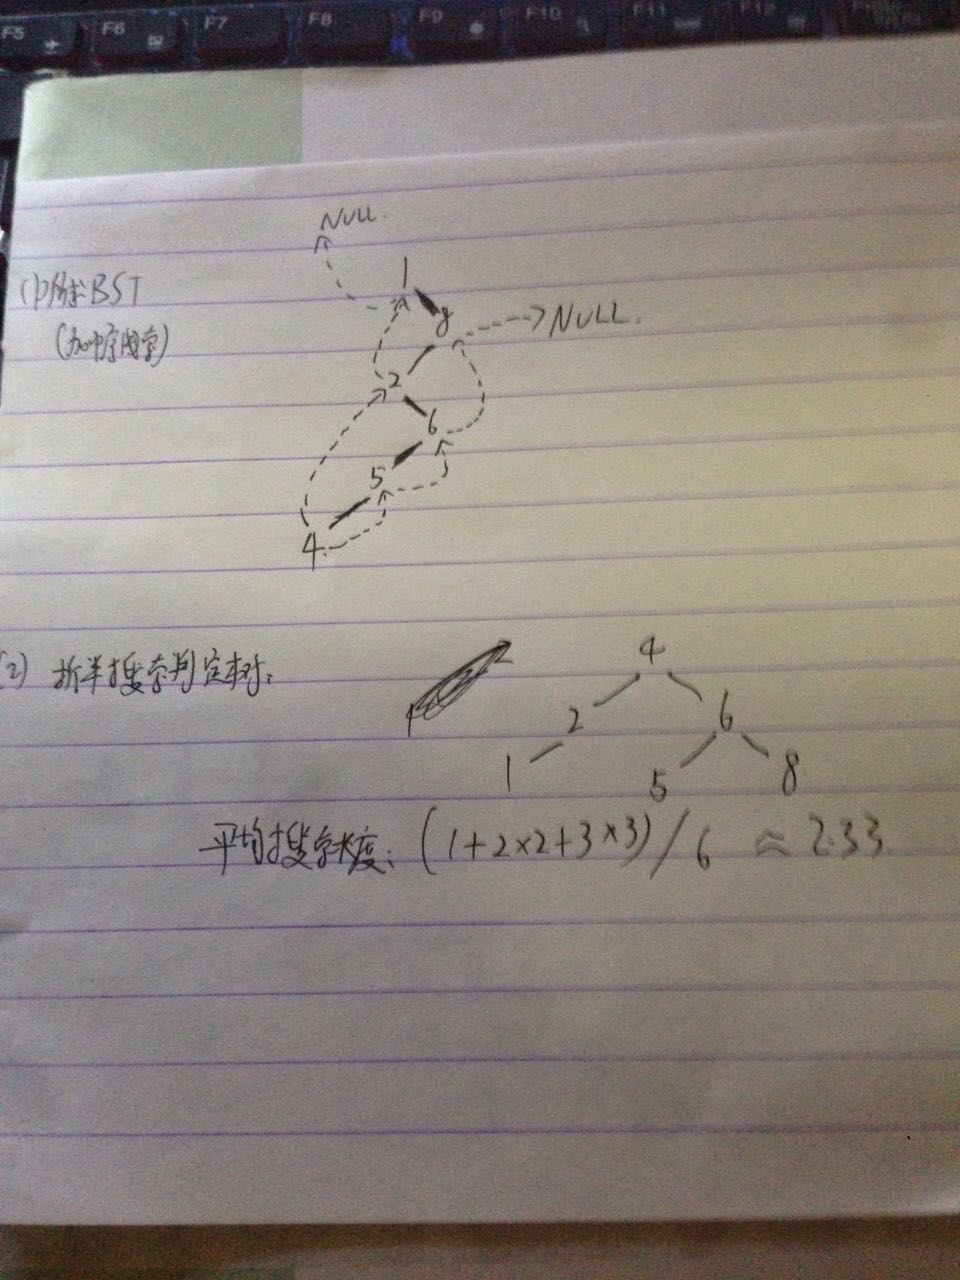 F5 F6 F7 F8 F9 F10 F11 F12
NULL.
(1)所求BST
1
8
NULL.
(加中序线索)
2
6
5
4
(2) 折半搜索判定树:
4
2
6
1
5
8
平均搜索长度: (1+2×2+3×3)/6 ≈ 2.33